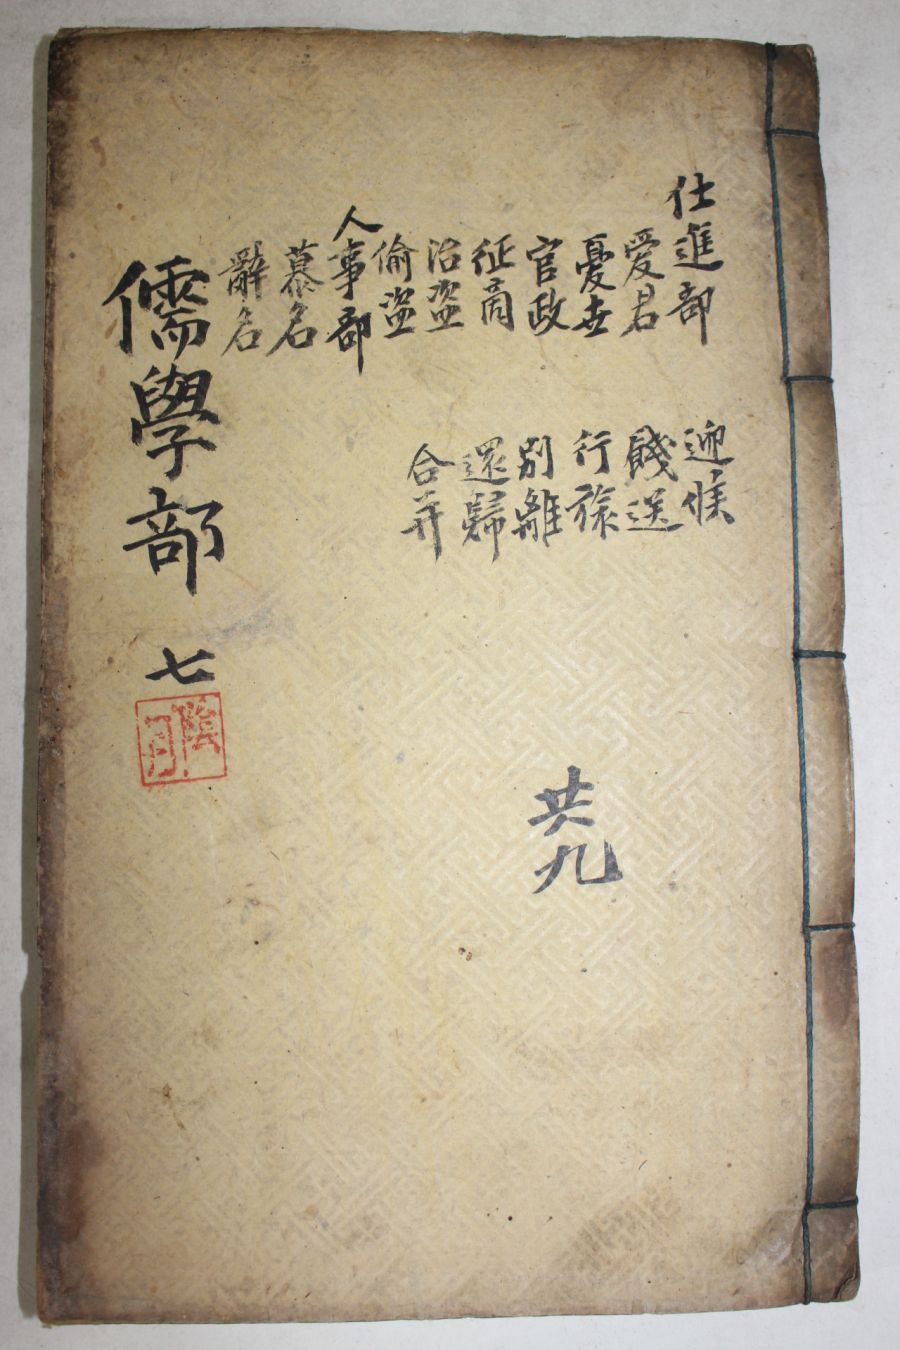 仕進部
愛君
憂世
官政
征商
治盗
偷盗
人事部
慕名
辭名
迎候
餞送
行旅
別離
還歸
合并
儒學部 七
共九